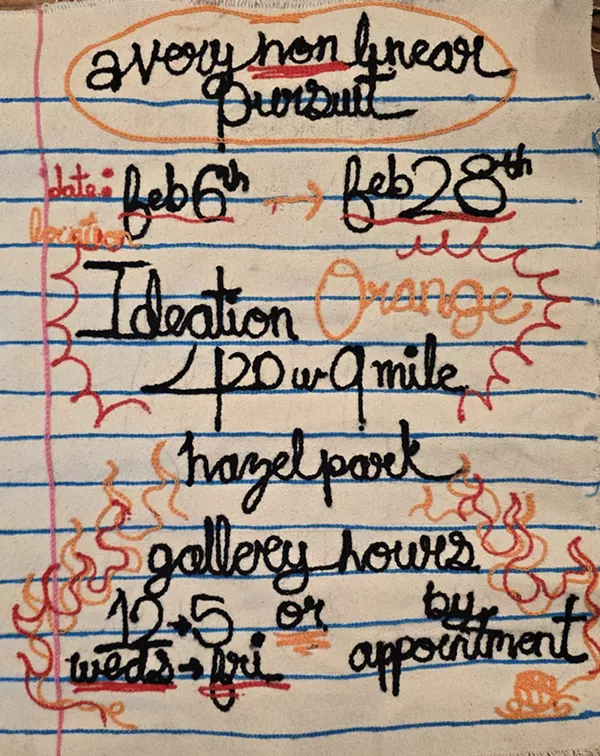 a very non linear
pursuit
date: feb 6th → feb 28th
location
Ideation Orange
420 w 9 mile
hazel park
gallery hours
12→5 or by
weds→fri appointment